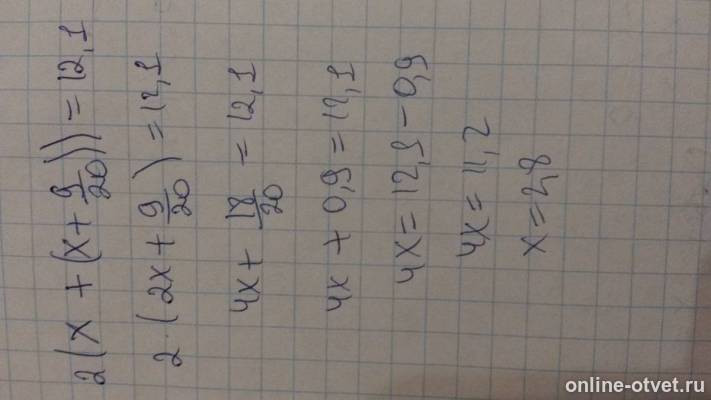 2(x + (x + 9/20)) = 12,1
2(2x + 9/20) = 12,1
4x + 18/20 = 12,1
4x + 0,9 = 12,1
4x = 12,1 - 0,9
4x = 11,2
x = 2,8
online-otvet.ru